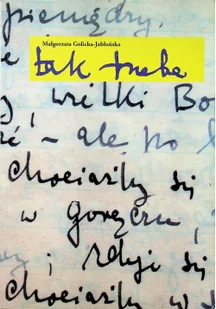 pieniędzy.
Małgorzata Golicka-Jabłońska
tak trzeba
, wielki Bo
ć – ale po
chociażby się
w gorącu,
i zdaje się
chociażby w